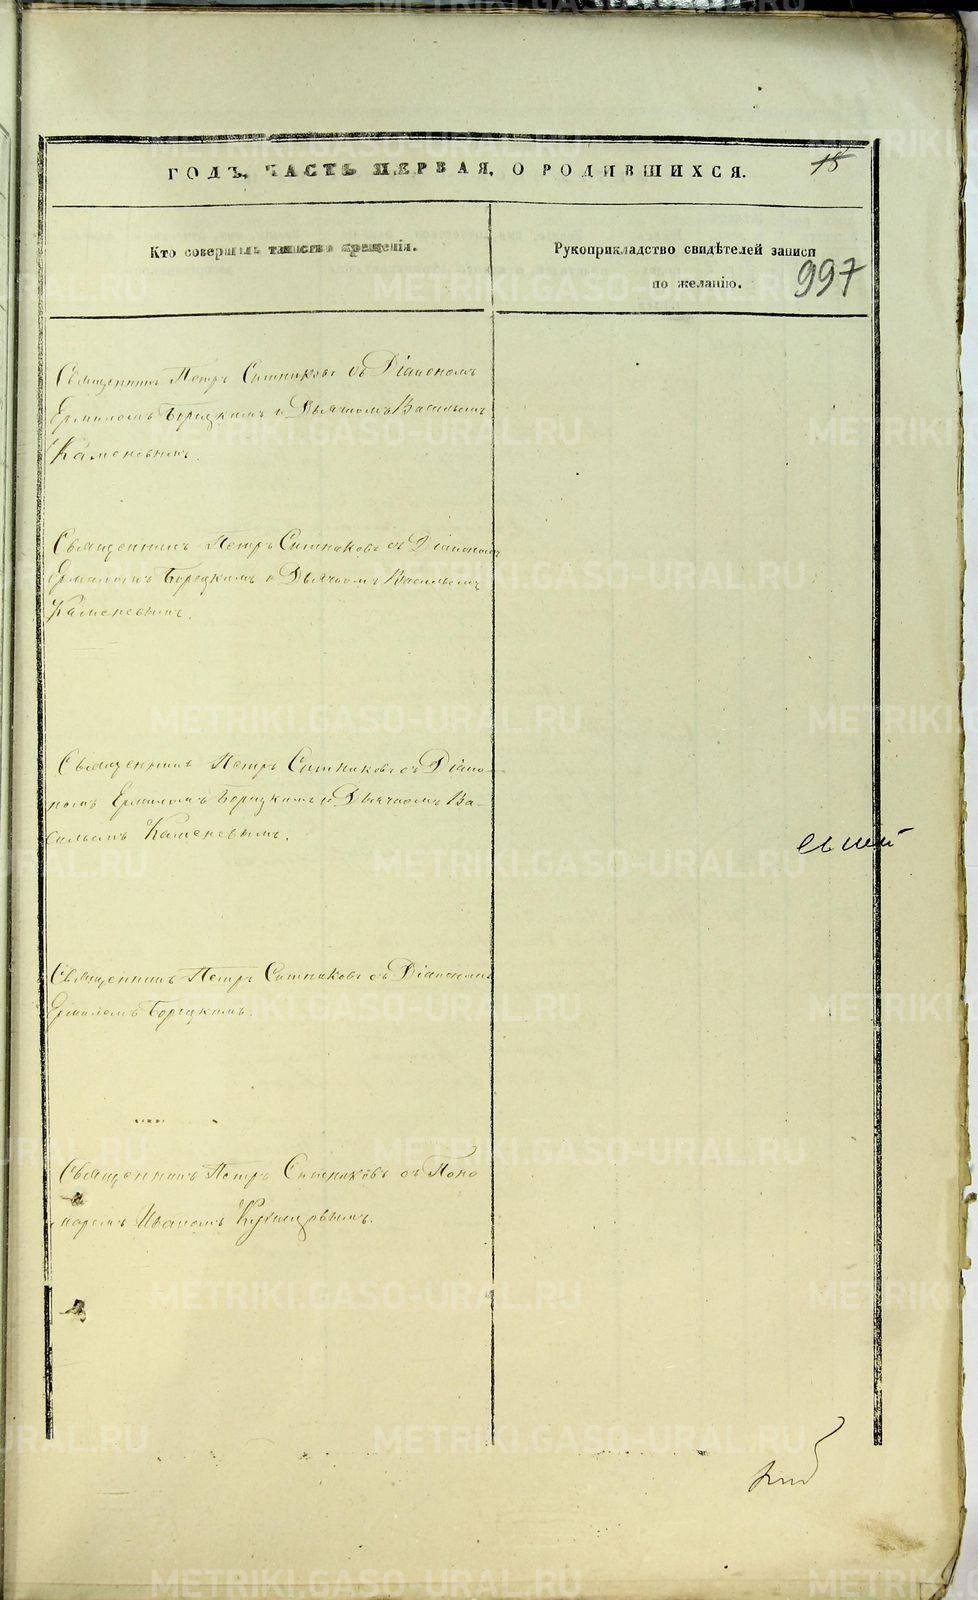 METRIKI.GASO-URAL.RU
ГОДЪ, ЧАСТЬ ПЕРВАЯ, О РОДИВШИХСЯ.
18
Кто совершалъ таинство крещенія.
Рукоприкладство свидѣтелей записи
по желанію.
997
Священникъ Петръ Ситниковъ съ Діакономъ
Ермиломъ Борецкимъ и Дьячкомъ Васильемъ
Каменевымъ.
Священникъ Петръ Ситниковъ съ Діакономъ
Ермиломъ Борецкимъ и Дьячкомъ Васильемъ
Каменевымъ.
Священникъ Петръ Ситниковъ съ Діако-
номъ Ермиломъ Борецкимъ и Дьячкомъ Ва-
сильемъ Каменевымъ.
Священникъ Петръ Ситниковъ съ Діакономъ
Ермиломъ Борецкимъ.
Священникъ Петръ Ситниковъ съ Поно
маремъ Иваномъ